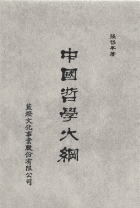 張岱年著
中國哲學大綱
藍燈文化事業股份有限公司